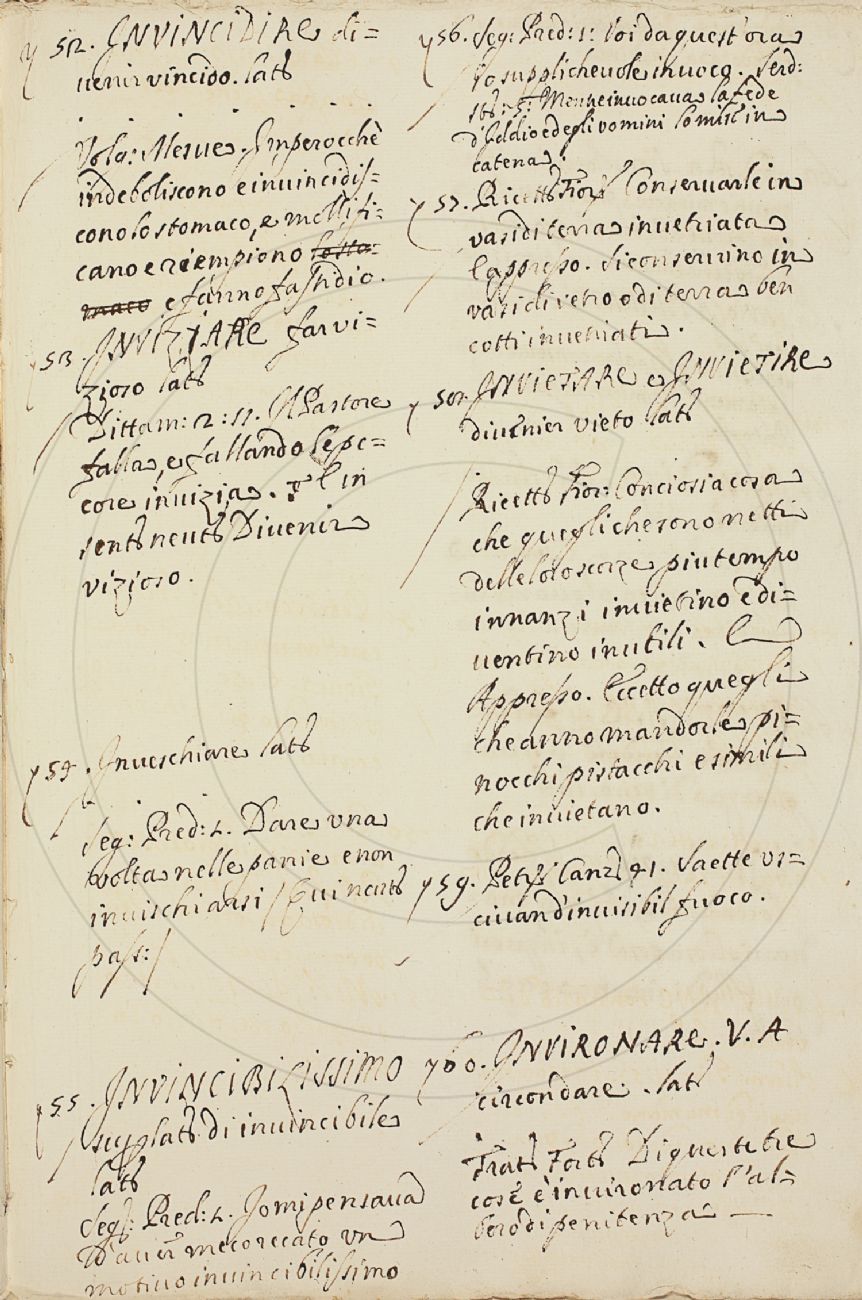 52. INVINCIDIRE di=
uenir vincido. lat:
Vola: Mesue. Imperocchè
indeboliscono e inuincidis=
cono lo stomaco, e mollifi=
cano e riempiono losto=
maco e fanno fastidio.
53. INVIZIARE far vi=
zioso lat:
Dittam: 2: 11. Il Pastore
falla, e fallando le pe=
core inuizia. E in
sent: neut: Diuenir
vizioso.
54. Inueschiare lat:
Seg: Pred: 2. Dare una
volta nelle panie e non
inuischiarsi / Qui neut:
pass: /
55. INVINCIBILISSIMO
superlat: di inuincibile
lat:
Seg: Pred: 2. Io mi pensaua
d'auer mecorecato un
motiuo inuincibilissimo
56. Seg: Pred: 1: Poi da quest'ora
lo supplicheuole inuoco. Serd:
st: 5: Mentre inuocaua la fede
d'Iddio e degli vomini lo misse in
catena.
57. Ricett: Fior: Conseruarle in
vasi di terra inuetriata
E appresso. Si conseruino in
vasi di vetro o di terra ben
cotti inuetriati.
58. INVIETARE e INVIETIRE
diuenier vieto lat:
Ricett: Fior: Conciosiacosa
che quegli che sono netti
delle loro scorze piu tempo
innanzi inuietino e di=
uentino inutili. E
Appresso. Eccetto quegli
che anno mandorle pi=
nocchi pistacchi e simili
che inuietano.
59. Petr: Canz: 41. Saette us=
ciuan d'inuisibil fuoco.
60. INVIRONARE. V. A
circondare. lat:
Tratt: Fort: Di queste tre
cose è inuironato l'al=
bero di penitenza —